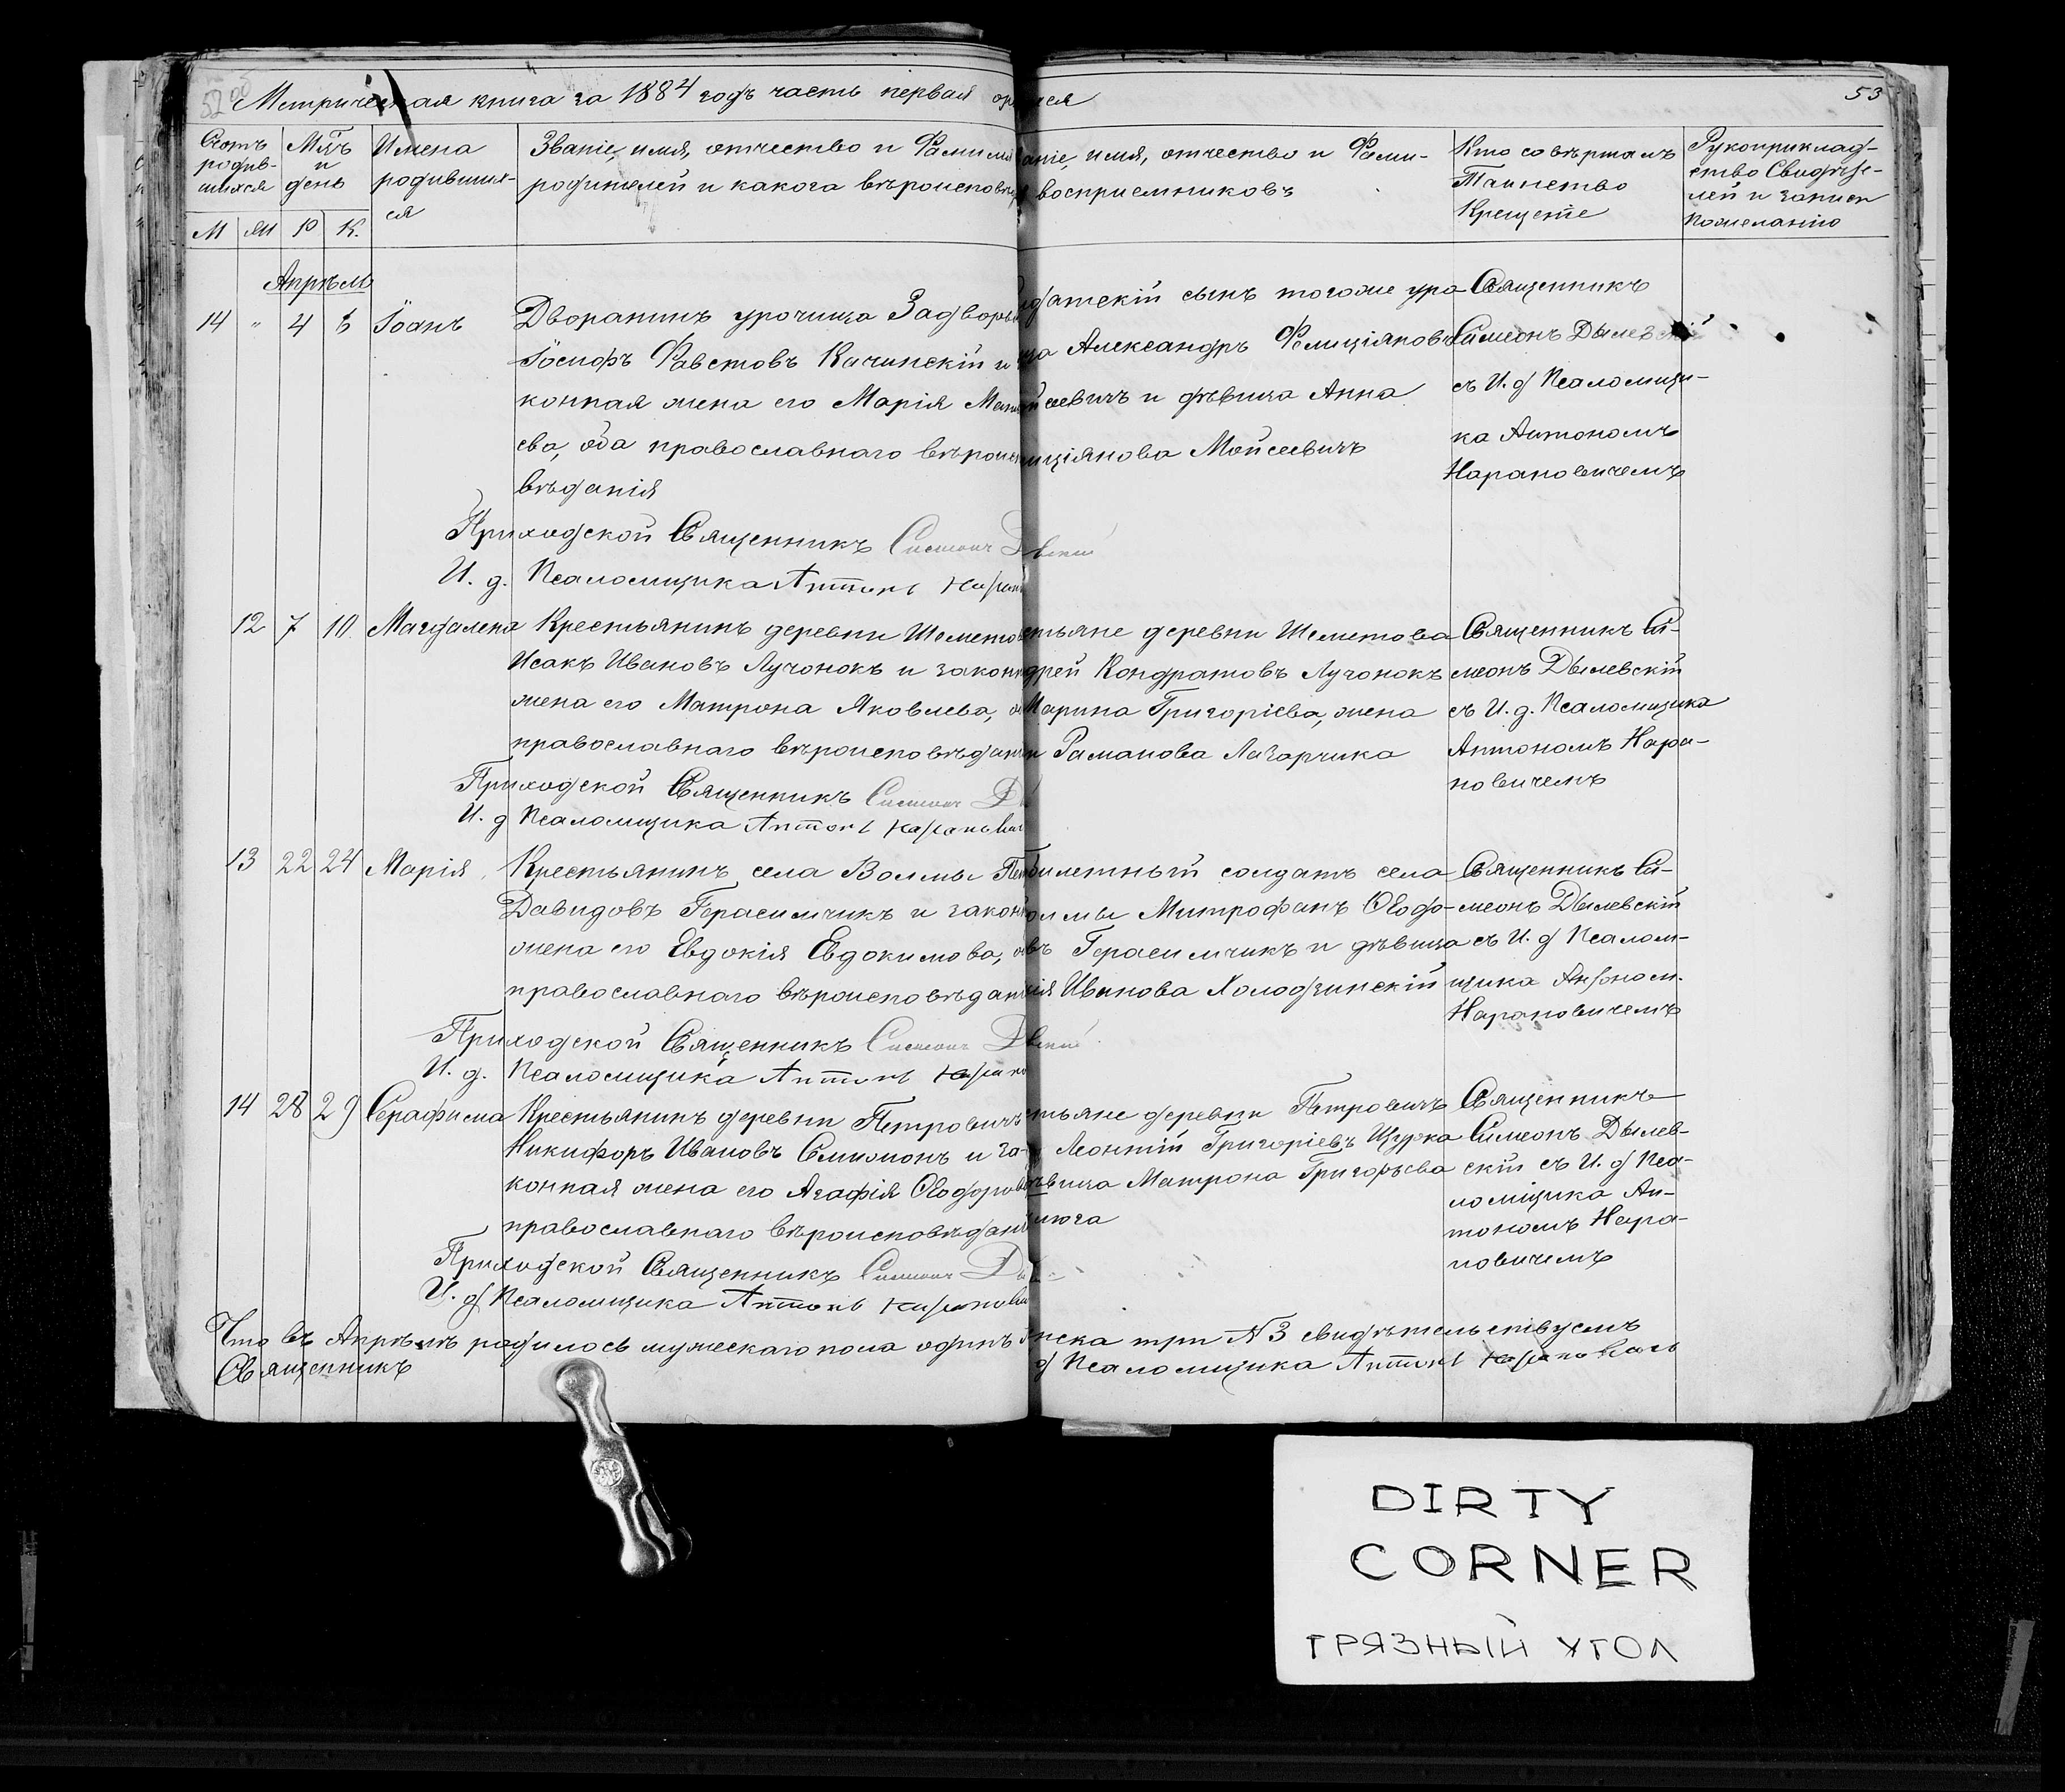 Метрическая книга за 1884 годъ часть первая
53
Счетъ родив-шихся
Мѣъ и день
Имена родивших-ся
Званіе, имя, отчество и Фамилі
родителей и какога вѣроисповѣд
аніе, имя, отчество и Фами-
восприемниковъ
Кто совѣршалъ
Таинство
Крещеніе
Рукоприклад-
ство Свидѣте-
лей и записи
пожеланію
М Ж Р К.
Апрѣль
14 " 4 Іоанъ
Дворанинъ урочища Задворь
Іосифъ Фавстовъ Качинскій и
конная жена его Марія Мат
ева, оба православнаго вѣроис
вѣданія
датскій сынъ тогоже уро
ща Александръ Фелиціянов
сеевичъ и дѣвица Анна
иціянова Мойсеевичъ
Священникъ
Симеонъ Дылевскій
съ И. д Псаломщи-
ка Антономъ
Нарановичемъ
Приходской Священникъ Симеонъ Д
И. д. Псаломщика Антонъ
12 7 10 Магдалена
Крестьянинъ деревни Шеметов
Исакъ Ивановъ Лучонокъ и законн
жена его Матрона Яковлева, о
православнаго вѣроисповѣдан
стьяне деревни Шеметова
дрей Кондратовъ Лучонокъ
Марина Григоріева, жена
и Раманова Лагарчика
Священникъ Си-
меонъ Дылевскій
съ И. д. Псаломщика
Антономъ Нара-
новичемъ
Приходской Священникъ Симеонъ Ды
И. д Псаломщика Антонъ Наранович
13 22 24 Марія
Крестьянинъ села Волмы Пет
Давидовъ Герасимчикъ и закон
жена его Евдокія Евдокимова, о
православнаго вѣроисповѣдан
билетный солдатъ села
олмы Митрофанъ Ѳеодо-
въ Герасимчикъ и дѣвица
ія Иванова Холодзинскій
Священникъ Си-
меонъ Дылевскій
съ И. д Псалом-
щика Антоном.
Нарановичемъ
Приходской Священникъ Симеонъ Д
И. д. Псаломщика Антонъ Нарано
14 28 29 Серафима
Крестьянинъ деревни Петровичъ
Никифоръ Ивановъ Семионъ и за-
конная жена его Агафія Ѳеодоров
православнаго вѣроисповѣдані
стьяне деревни Петровичъ
Леонтій Григоріевъ Щурка
вица Матрона Григорьева
люга
Священникъ
Симеонъ Дылев-
скій съ И. д Пса-
ломщика Ан-
тономъ Нара-
новичемъ
Приходской Священникъ Симеонъ Ды
И. д Псаломщика Антонъ Нарановичъ
Что въ Апрѣлѣ родилось мужескаго пола одинъ женска три N 3 свидѣтельствуемъ
Священникъ
д Псаломщика Антонъ Нарановичъ
DIRTY
CORNER
ГРЯЗНЫЙ УГОЛ